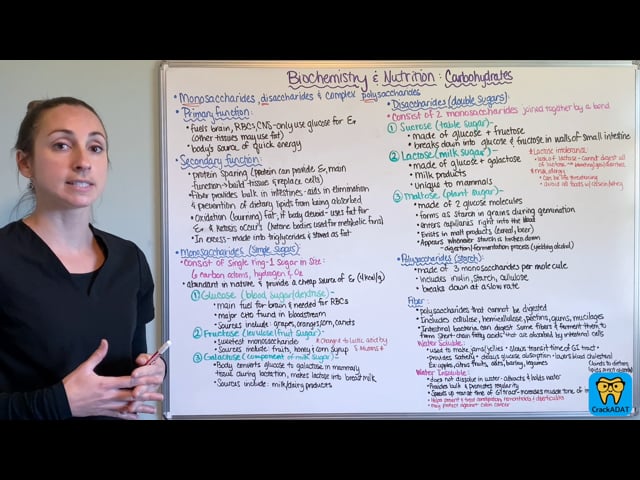 Biochemistry & Nutrition: Carbohydrates
• Monosaccharides, disaccharides & complex polysaccharides
• Primary function:
- fuels brain, RBCs, CNS-only use glucose for E.
(other tissues may use fat)
- body's source of quick energy
Secondary function:
- protein sparing (protein can provide E, main
function → build tissue & replace cells)
- fiber provides bulk in intestines - aids in elimination
& prevention of dietary lipids from being absorbed
- Oxidation (burning) fat, if body deprived - uses fat for
E & ketosis occurs (ketone bodies used for metabolic fuel)
- In excess - made into triglycerides & stored as fat
Monosaccharides (single sugars):
- consist of single ring-1 sugar in size:
6 carbon atoms, hydrogen & O2
- abundant in nature & provide a cheap source of E (4kcal/g)
① Glucose (blood sugar/dextrose)-
- main fuel for brain & needed for RBCs
- major CHO found in bloodstream
- Sources include: grapes, oranges, corn, carrots
② Fructose (levulose/fruit sugar)-
- sweetest monosaccharide
- Sources include: fruits, honey & corn syrup
* changed to lactic acid by
S. Mutans *
③ Galactose (component of milk sugar)-
- Body converts glucose to galactose in mammary
tissue during lactation, makes lactose into breast milk
- Sources include: milk/dairy products
Disaccharides (double sugars):
• Consist of 2 monosaccharides joined together by a bond
① Sucrose (table sugar)-
- made of glucose + fructose
- breaks down into glucose & fructose in walls of small intestine
② Lactose (milk sugar)-
- made of glucose & galactose
- Milk products
- Unique to mammals
* Lactose intolerance
- lack of lactase → cannot digest all
of lactose →
* Milk allergy
- can be life threatening
- avoid all foods w/ casein/whey
③ Maltose (plant sugar)-
- made of 2 glucose molecules
- forms as starch in grains during germination
- enters capillaries right into the blood
- Exists in malt products (cereal, beer)
- Appears whenever starch is broken down
- digestion/fermentation process (yielding alcohol)
Polysaccharides (starch):
- made of 3 monosaccharides per molecule
- includes inulin, starch, cellulose
- breaks down at a slow rate
Fiber:
- polysaccharides that cannot be digested
- Includes cellulose, hemicellulose, pectins, gums, mucilages
- Intestinal bacteria can digest some fibers & ferment them to
form "short-chain fatty acids" that can be absorbed by intestinal cells
Water Soluble:
- used to make gums/jellies - slows transit time of GI tract
- provides satiety - delays glucose absorption - lowers blood cholesterol
Ex: apples, citrus fruits, oats, barley, legumes
Water Insoluble:
- does not dissolve in water - attracts & holds water
- Provides bulk & promotes regularity
- Speeds up transit time of GI tract - increases muscle tone of
- Helps prevent & treat constipation, hemorrhoids & diverticulitis
- May protect against colon cancer
CrackADAT